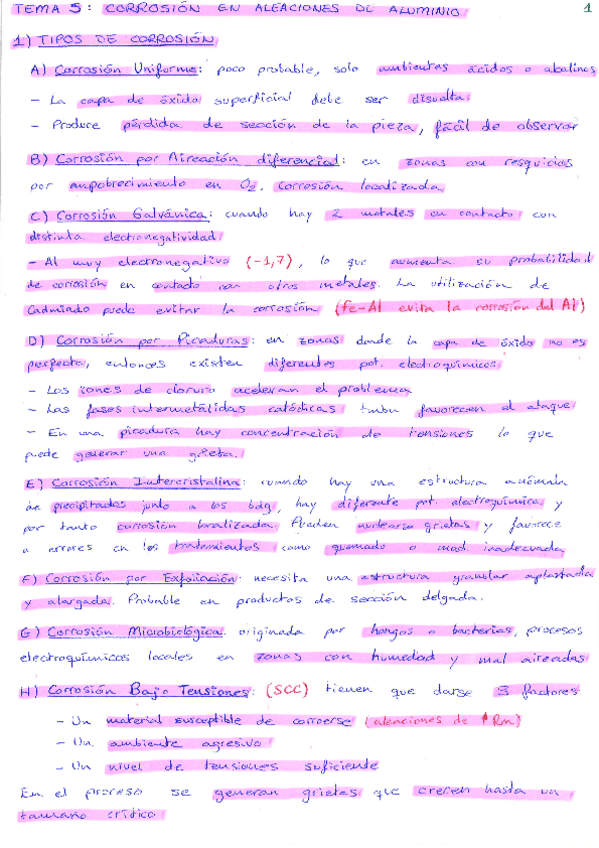 TEMA 5: CORROSIÓN EN ALEACIONES DE ALUMINIO 1
1) TIPOS DE CORROSIÓN
A) Corrosión Uniforme: poco probable, solo ambientes ácidos o alcalinos
- La capa de óxido superficial debe ser disuelta
- Produce pérdida de sección de la pieza, fácil de observar
B) Corrosión por Aireación diferencial: en zonas con resquicios
por empobrecimiento en O2. Corrosión localizada
C) Corrosión Galvánica: cuando hay 2 metales en contacto con
distinta electronegatividad
- Al muy electronegativo (-1,7), lo que aumenta su probabilidad
de corrosión en contacto con otros metales. La utilización de
Cadmiado puede evitar la corrosión (Fe-Al evita la corrosión del Al)
D) Corrosión por Picaduras: en zonas donde la capa de óxido no es
perfecta, entonces existen diferentes pot. electroquímicos
- Los iones de cloruro aceleran el problema
- Las fases intermetálidas catódicas tmbn favorecen el ataque
- En una picadura hay concentración de tensiones lo que
puede generar una grieta.
E) Corrosión Intercristalina: cuando hay una estructura anómala
de precipitados junto a los bdg, hay diferente pot. electroquímico y
por tanto corrosión localizada. Pueden nuclearse grietas y favorece
a errores en los tratamientos como quemado o mad. inadecuada
F) Corrosión por Exfoliación: necesita una estructura granular aplastada
y alargada. Probable en productos de sección delgada.
G) Corrosión Microbiológica: originada por hongos o bacterias, procesos
electroquímicos locales en zonas con humedad y mal aireadas
H) Corrosión Bajo Tensiones: (SCC) tienen que darse 3 factores
- Un material susceptible de corroerse (aleaciones de ↑Rm)
- Un ambiente agresivo
- Un nivel de tensiones suficiente
En el proceso se generan grietas que crecen hasta un
tamaño crítico